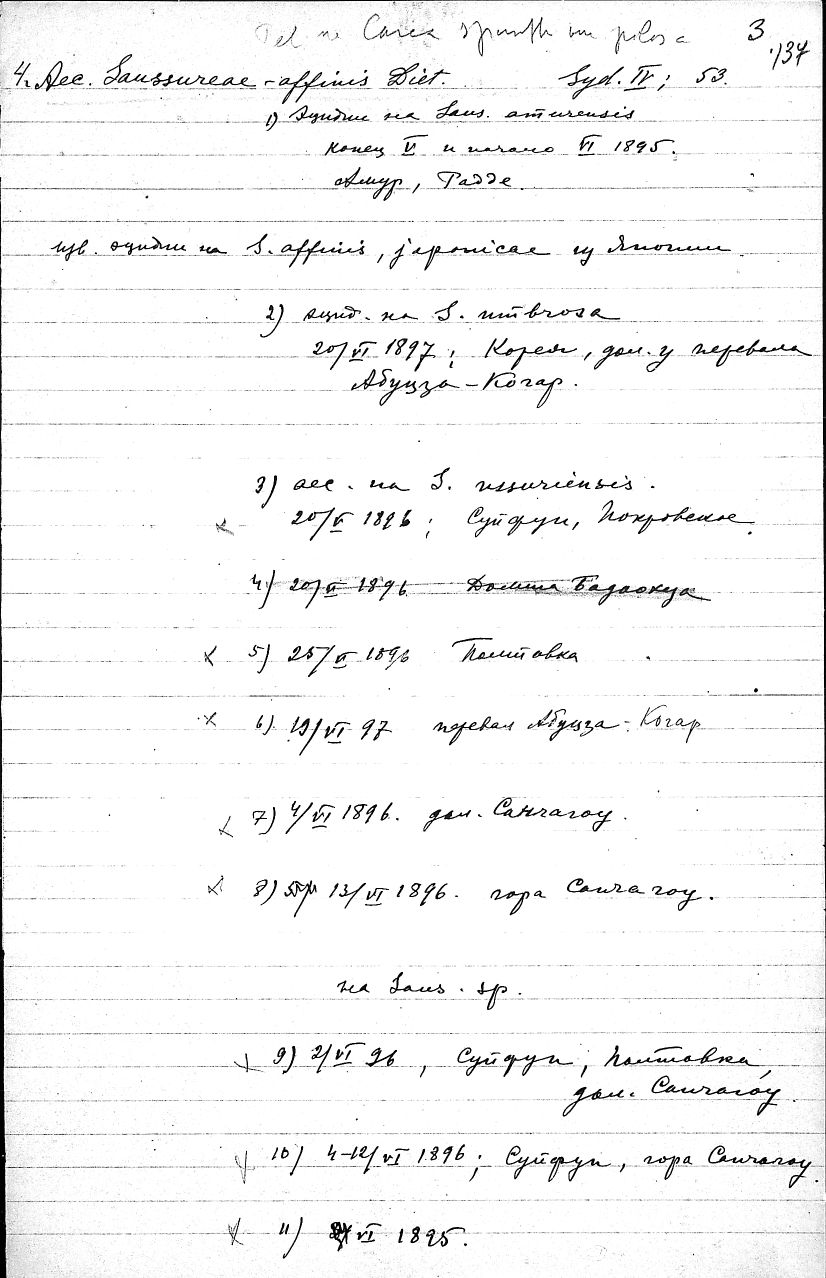 Tel на Carex pilosa
3
137
4. Aec. Saussureae-affinis Diet. Syd. IV; 53.
1) Эцидии на Saus. amurensis
конец V и начало VI 1895.
Амур, Радде.
изв. эцидии на S. affinis, japonicae из Японии.
2) эцид. на S. umbrosa
20/VI 1897; Корея, дол. у перевала
Абуцза-Когар.
3) aec. на S. ussuriensis.
× 20/V 1896; Суйфун, Покровское.
4) 20/V 1896 Долина Бадаокуа
× 5) 25/V 1896 Полтавка
× 6) 19/VI 97 перевал Абуцза-Когар
× 7) 4/VI 1896. дол. Санчагоу.
× 8) 13/VI 1896. гора Санчагоу.
на Saus. sp.
× 9) 2/VI 96, Суйфун, Полтавка,
дол. Санчагоу.
× 10) 4-12/VI 1896; Суйфун, гора Санчагоу.
× 11) VI 1895.